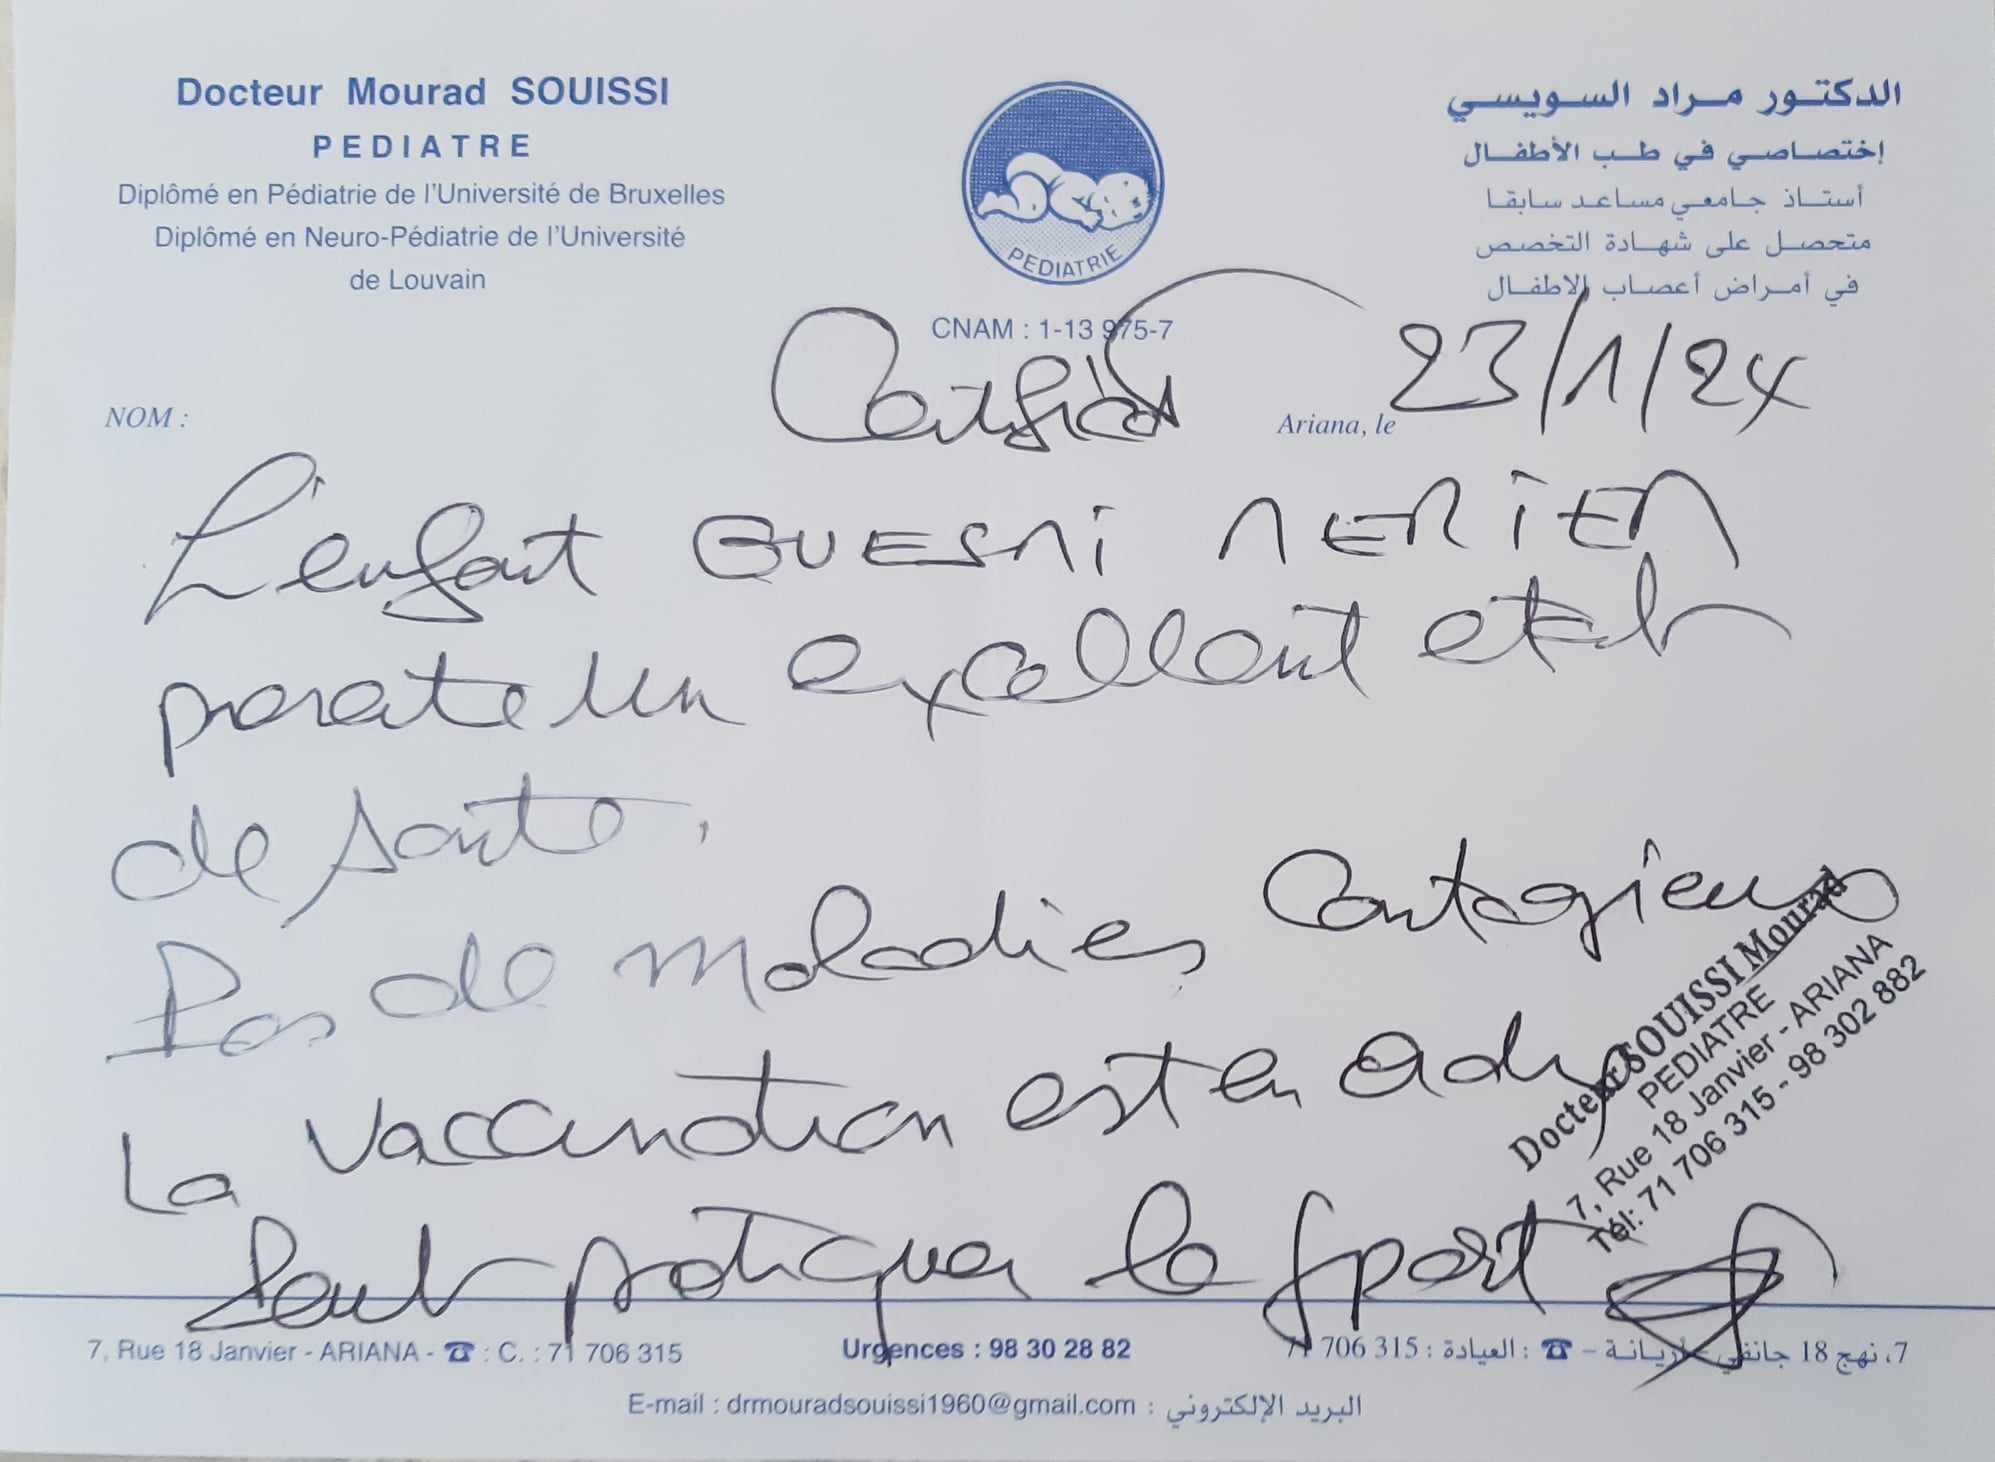 Docteur Mourad SOUISSI
PEDIATRE
Diplômé en Pédiatrie de l'Université de Bruxelles
Diplômé en Neuro-Pédiatrie de l'Université
de Louvain
PEDIATRIE
CNAM : 1-13 975-7
الدكتور مراد السويسي
إختصاصي في طب الأطفال
أستاذ جامعي مساعد سابقا
متحصل على شهادة التخصص
في أمراض أعصاب الاطفال
NOM :
Certificat
Ariana, le 23/1/24
L'enfant GUESMI MERIEM
presente un excellent etat
de santé.
Pas de maladies contagieuses
La vaccination est en
Peut pratiquer le sport
Docteur SOUISSI Mourad
PEDIATRE
7, Rue 18 Janvier - ARIANA
Tél: 71 706 315 - 98 302 882
7, Rue 18 Janvier - ARIANA - ☎ : C. : 71 706 315
Urgences : 98 30 28 82
7، نهج 18 جانفي - أريانة - ☎ : العيادة : 315 706 71
E-mail : drmouradsouissi1960@gmail.com : البريد الإلكتروني